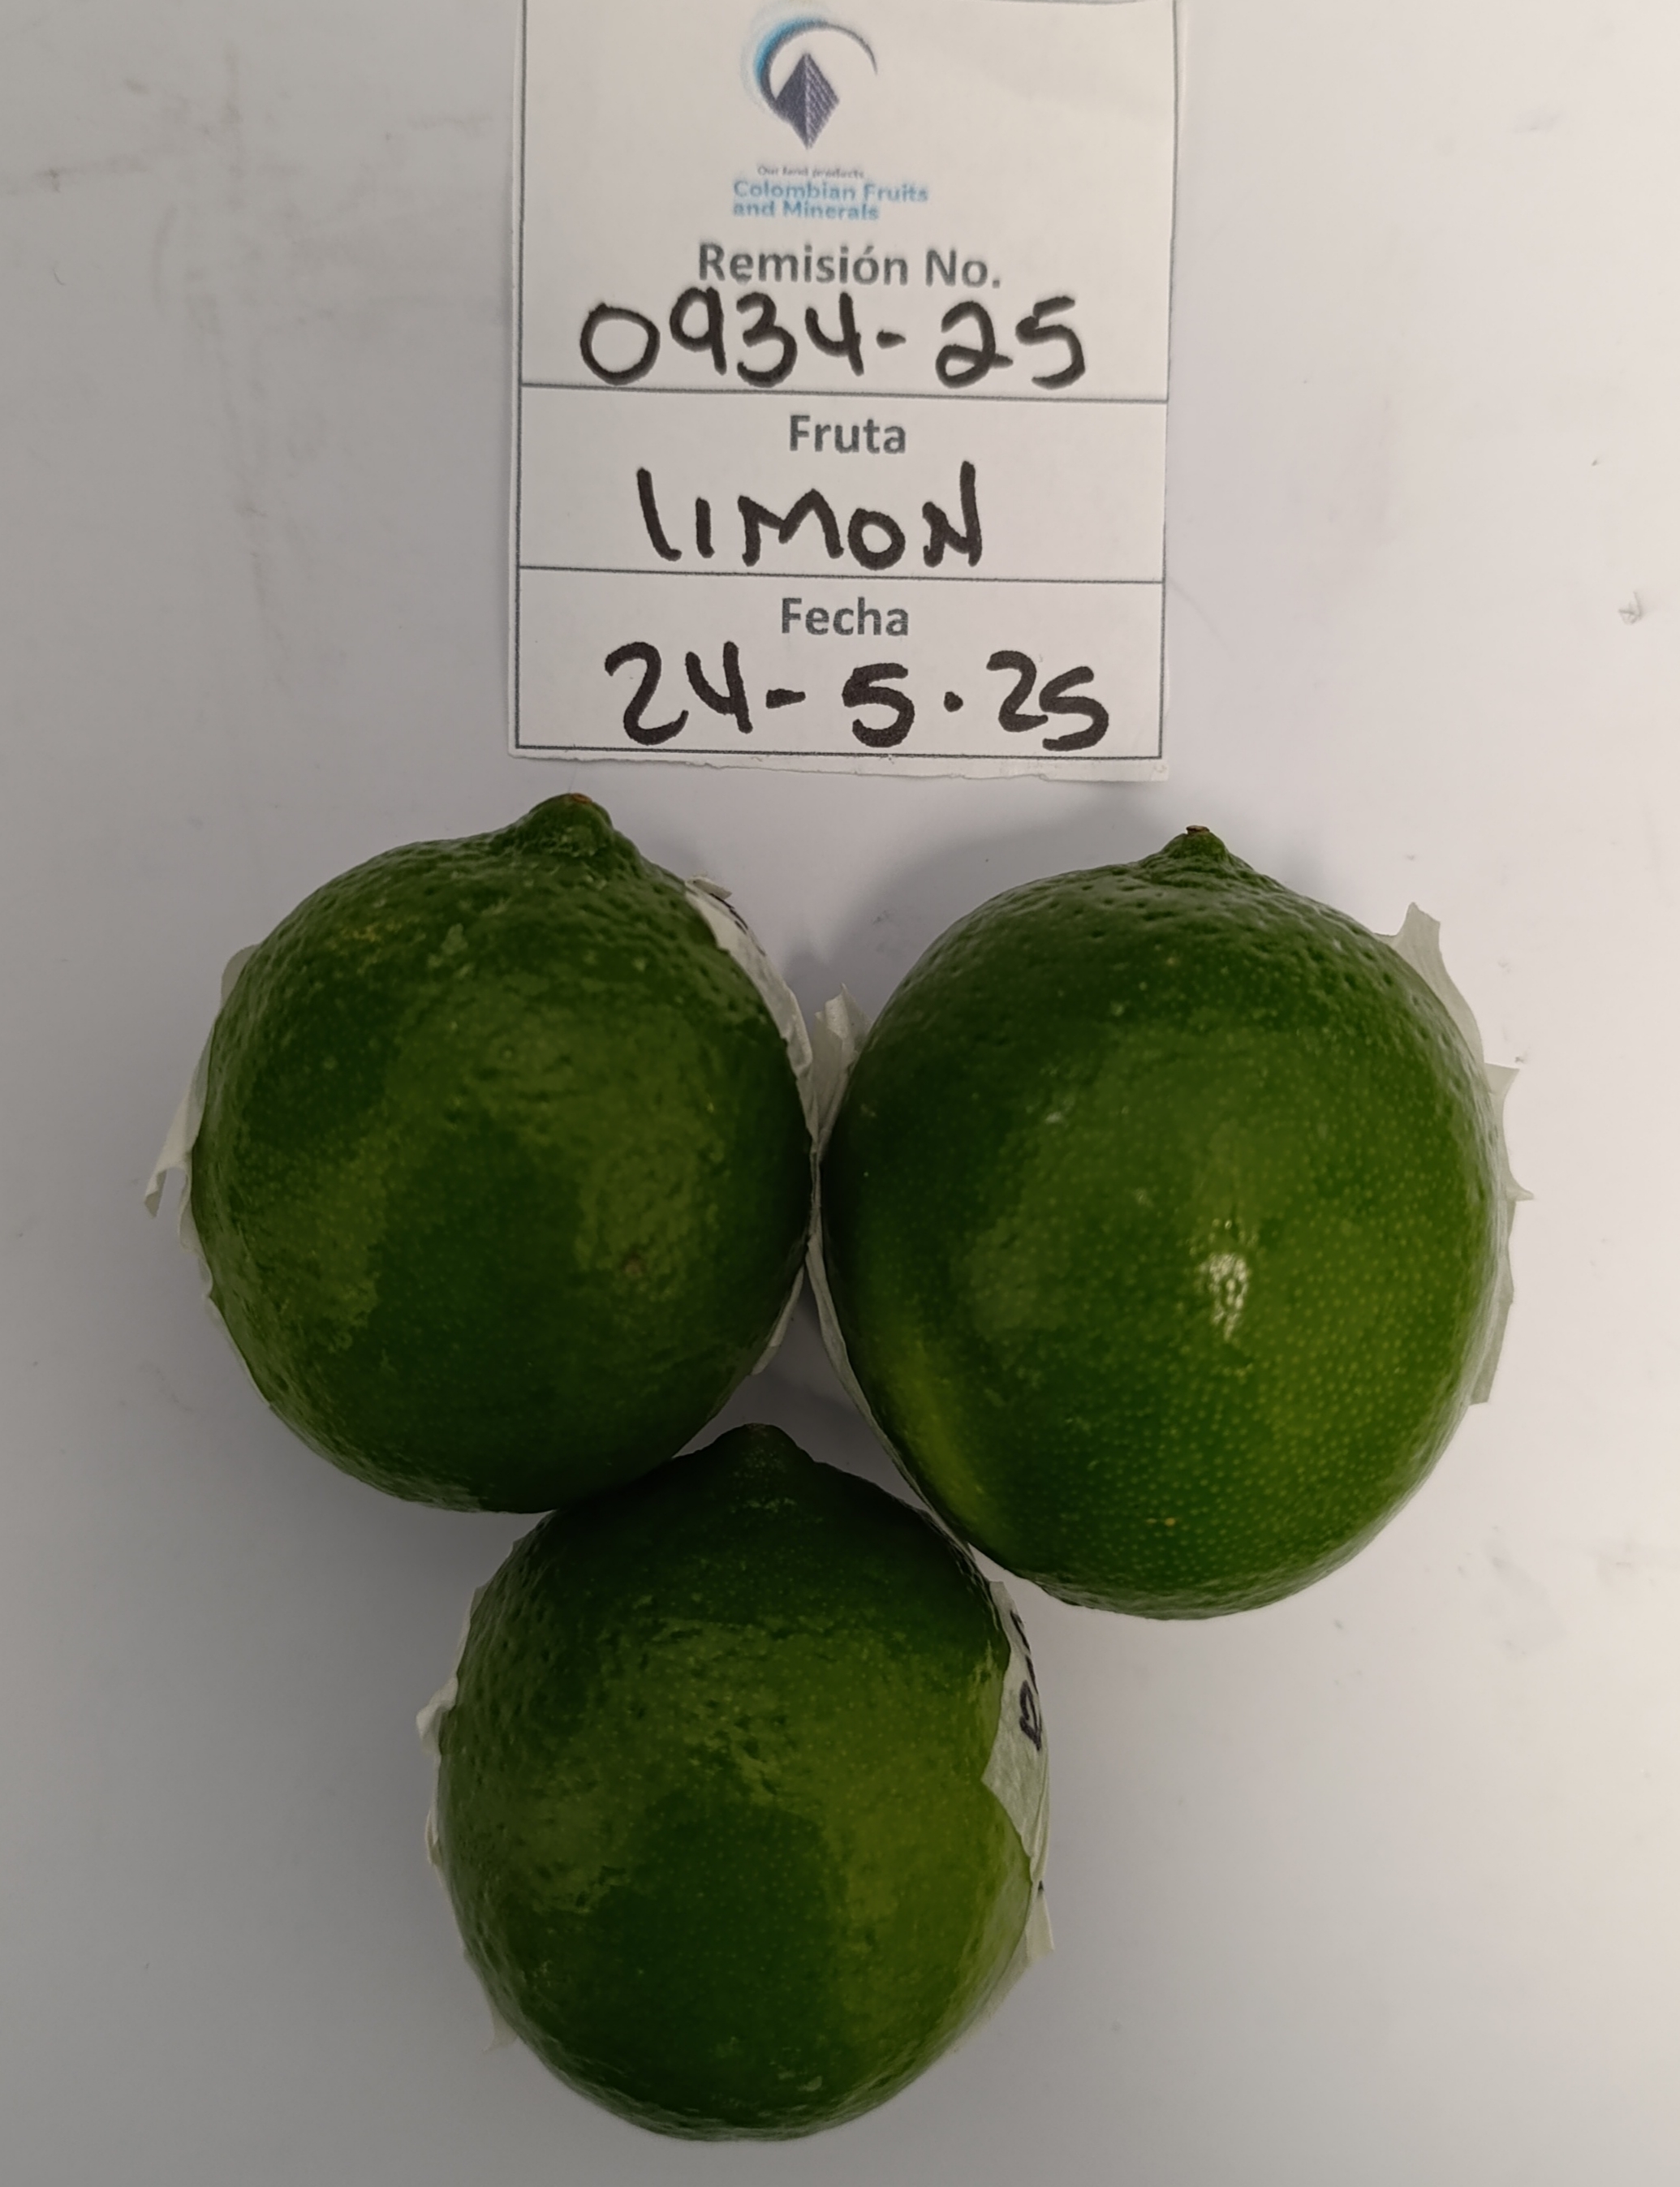 Our land products
Colombian Fruits
and Minerals
Remisión No.
0934-25
Fruta
LIMON
Fecha
24-5.25